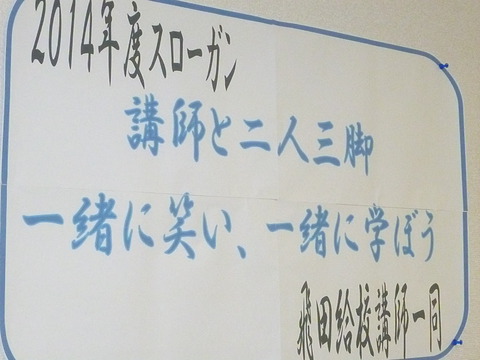 2014年度スローガン
講師と二人三脚
一緒に笑い、一緒に学ぼう
飛田給校講師一同